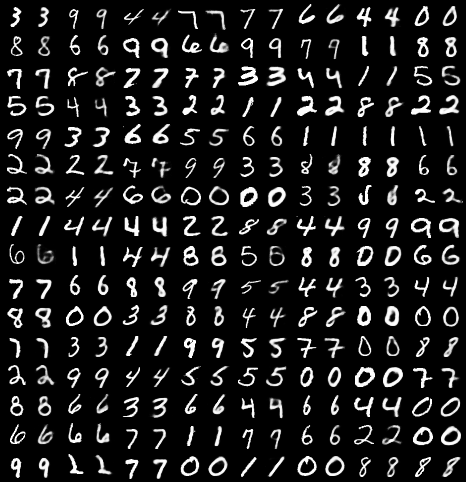 3 3 9 9 4 4 7 7 7 7 6 6 4 4 0 0
8 8 6 6 9 9 6 6 9 9 7 9 1 1 8 8
7 7 8 8 7 7 7 7 3 3 4 4 1 1 5 5
5 5 4 4 3 3 2 2 1 1 2 2 8 8 2 2
9 9 3 3 6 6 5 5 6 6 1 1 1 1 1 1
2 2 2 2 7 7 9 9 3 3 8 8 8 8 6 6
2 2 4 4 6 6 0 0 0 0 3 3 6 2 2
1 1 4 4 4 4 2 2 8 8 4 4 9 9 9 9
6 6 1 1 4 4 8 8 5 5 8 8 0 0 6 6
7 7 6 6 8 8 9 9 5 5 4 4 3 3 4 4
8 8 0 0 3 3 8 8 4 4 8 8 0 0 0 0
7 7 3 3 1 1 9 9 5 5 7 7 0 0 8 8
2 2 9 9 4 4 5 5 5 5 0 0 0 0 7 7
8 8 6 6 3 3 6 6 4 4 6 6 4 4 0 0
6 6 6 6 7 7 1 1 7 7 6 6 2 2 0 0
9 9 2 2 7 7 0 0 1 1 0 0 8 8 8 8